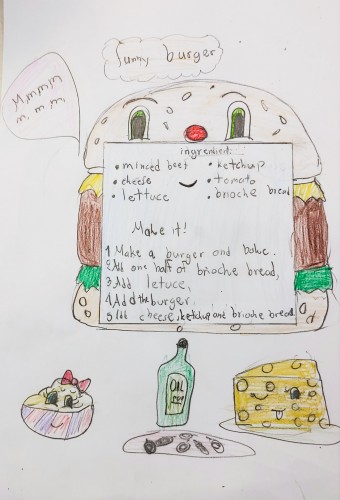 Funny burger
Mmmm
m m m
ingredient:
• minced beef
• cheese
• lettuce
• ketchup
• tomato
• brioche bread
Make it!
1 Make a burger and bake.
2 Add one half of brioche bread,
3 Add letuce,
4 Add the burger.
5 Add cheese, ketchup and brioche bread